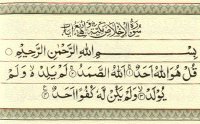 سورة الإخلاص مكية وهي أربع آيات
بِسْمِ اللهِ الرَّحْمٰنِ الرَّحِيْمِ
قُلْ هُوَ اللهُ اَحَدٌ ۚ اَللهُ الصَّمَدُ ۚ لَمْ يَلِدْ ۙ وَلَمْ
يُوْلَدْ ۙ وَلَمْ يَكُنْ لَّهٗ كُفُوًا اَحَدٌ